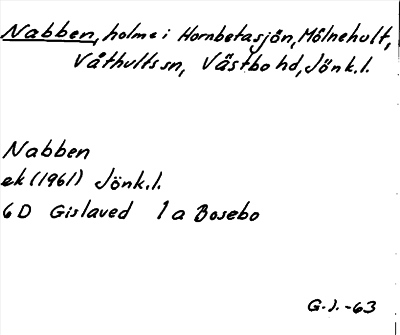 Nabben, holme i Hornbetasjön, Mölnehult,
Våthults sn, Västbo hd, Jönk.l.
Nabben
ek (1961) Jönk.l.
6D Gislaved 1a Bosebo
G.J. -63